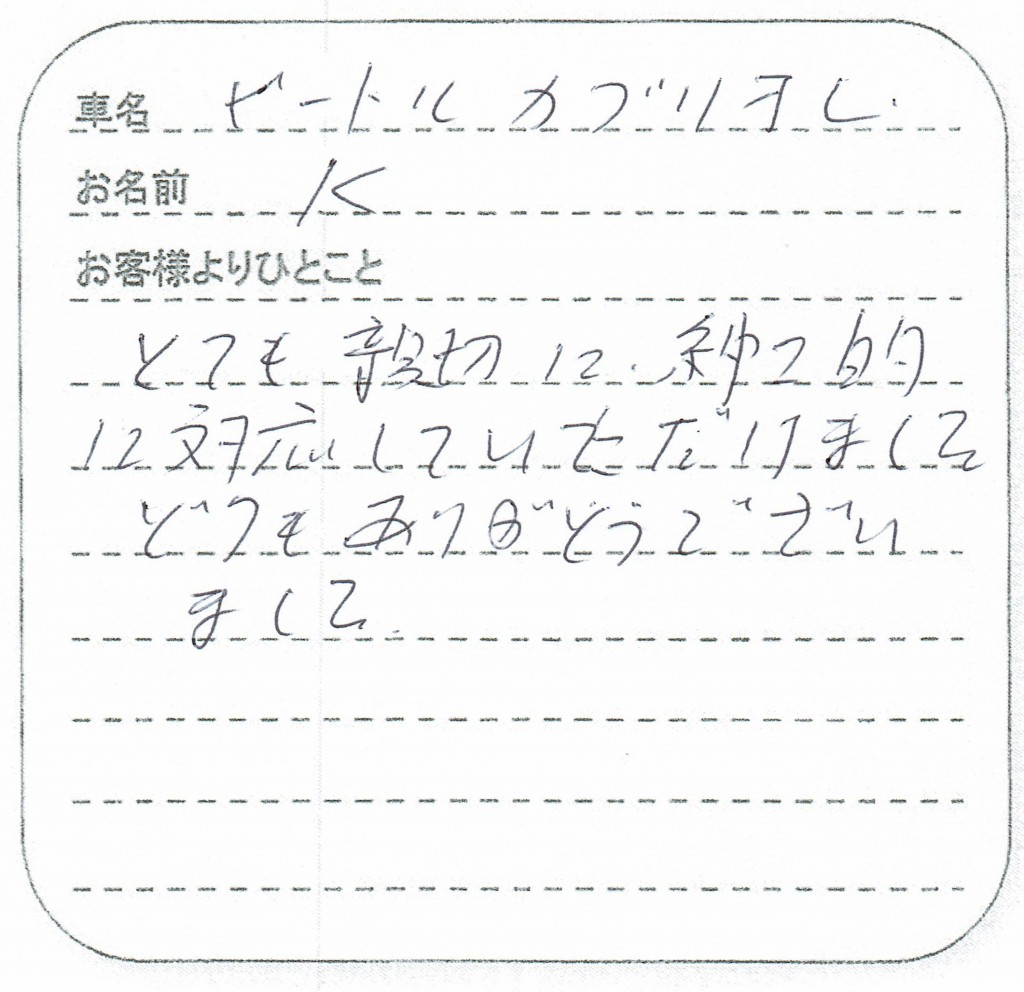 車名 ビートル カブリオレ
お名前 K
お客様よりひとこと
とても親切に、紳士的
に対応していただけまして
どうもありがとうございい
まして